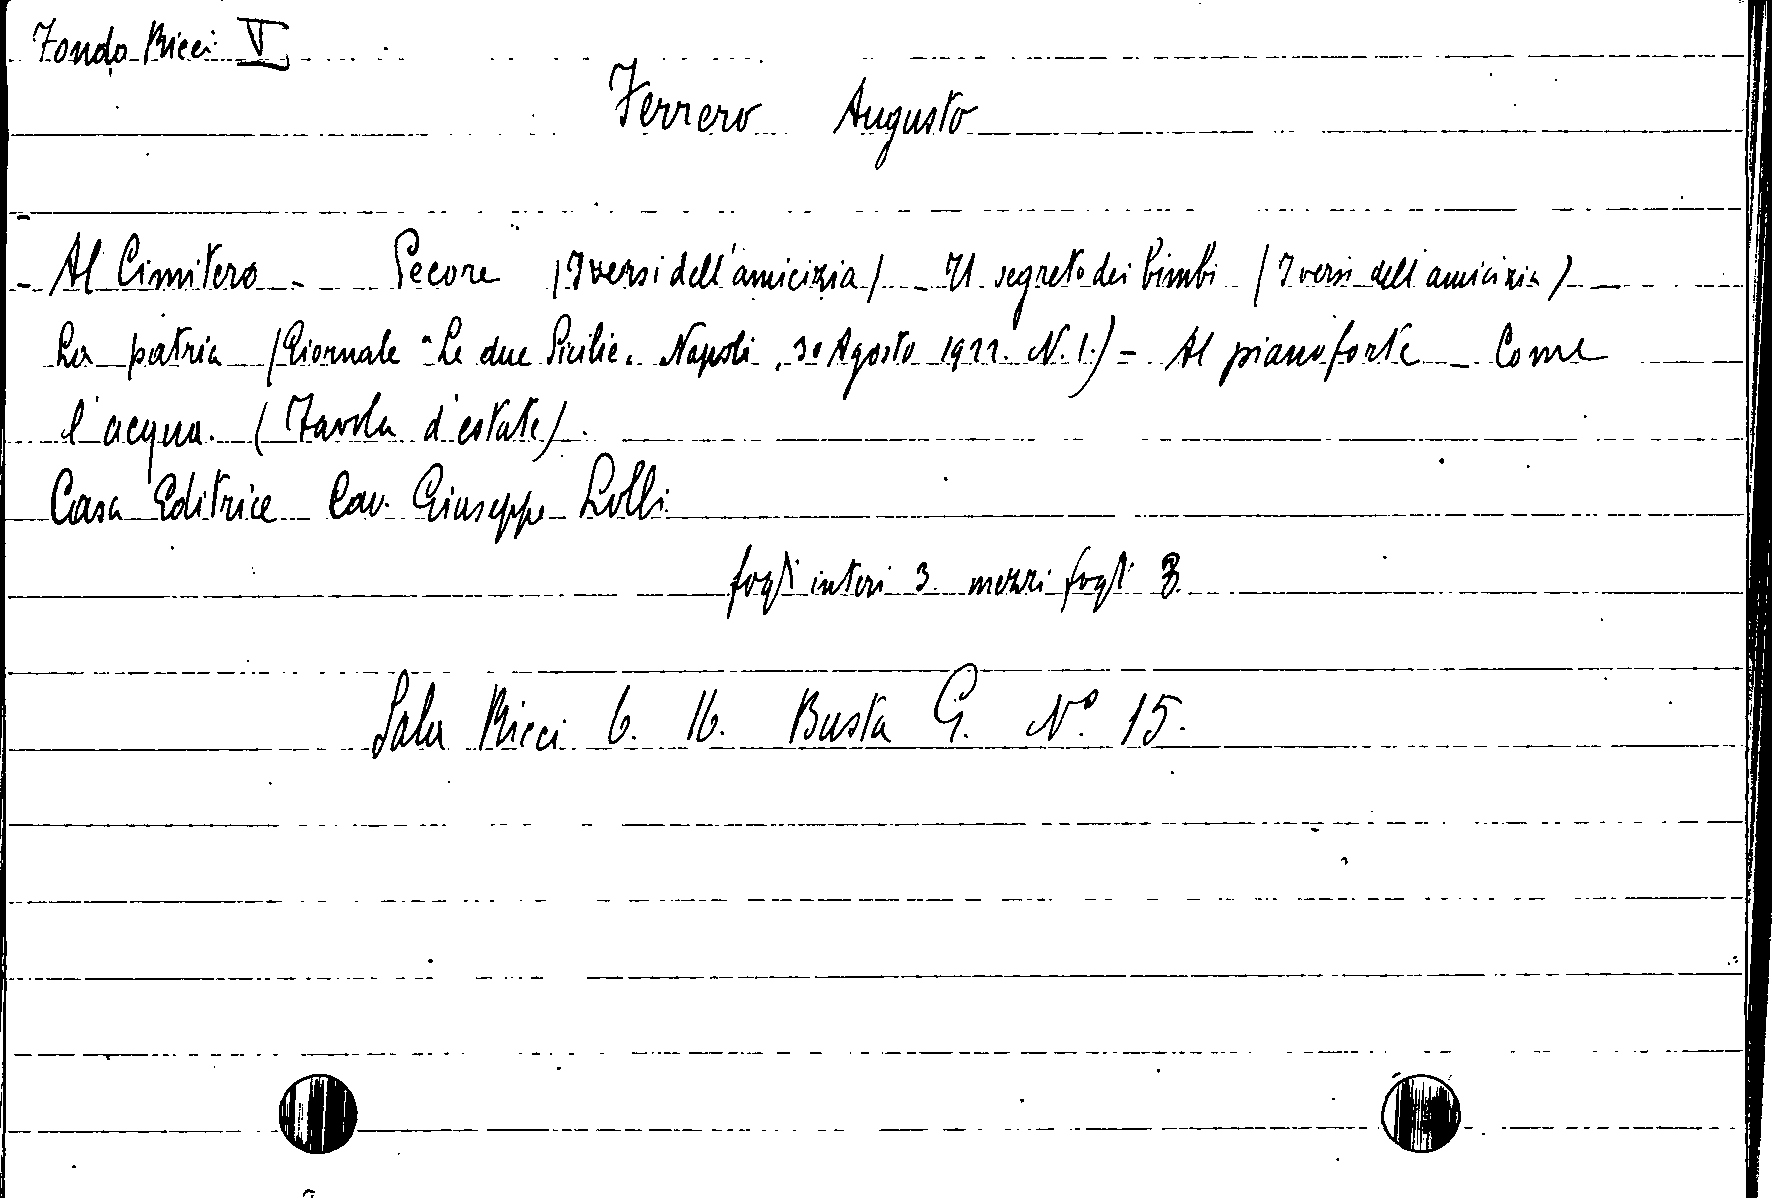 Fondo Ricci V
Ferrero Augusto
- Al Cimitero - Pecore (I versi dell'amicizia) - Il segreto dei bimbi (I versi dell'amicizia) -
La patria (Giornale "Le due Sicilie. Napoli, 30 Agosto 1922. N. 1.) - Al pianoforte - Come
l'acqua. (Favola d'estate).
Casa Editrice Cav. Giuseppe Lolli
fogli interi 3. mezzi fogli 3.
Sala Ricci 6. 16. Busta G. N° 15.